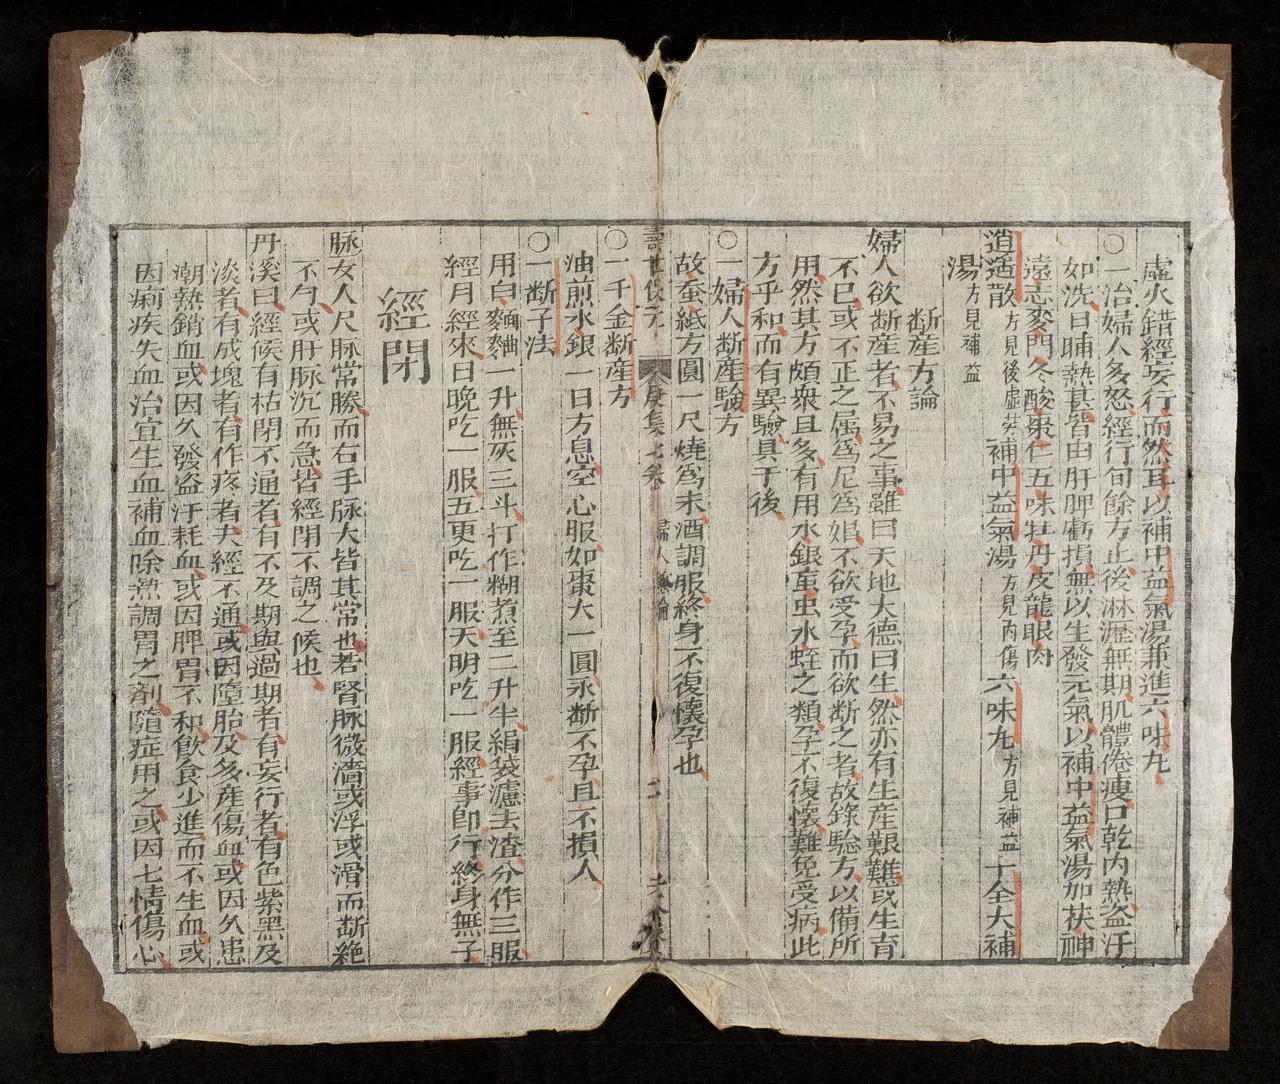 虛火錯經妄行而然耳以補中益氣湯兼進六味丸
○一治婦人多怒經行旬餘方止後淋瀝無期肌體倦瘦口乾內熱盜汗
如洗日晡熱甚皆由肝脾虧損無以生發元氣以補中益氣湯加茯神
遠志麥門冬酸棗仁五味牡丹皮龍眼肉
逍遥散方見後虛勞補中益氣湯方見內傷六味丸方見補益十全大補
湯方見補益
断產方論
婦人欲断產者不易之事雖曰天地大德曰生然亦有生產艱難或生育
不已或不正之属為尼為娼不欲受孕而欲断之者故錄驗方以備所
用然其方頗衆且多有用水銀䖟虫水蛭之類孕不復懷難免受病此
方乎和而有異驗具于後
○一婦人断產驗方
故蚕紙方圓一尺燒為末酒調服終身不復懷孕也
壽世保元 庚集七卷 婦人 二
○一千金断產方
油煎水銀一日方息空心服如棗大一圓永断不孕且不損人
○一断子法
用白麵麥麴一升無灰三斗打作糊煮至二升半絹袋濾去渣分作三服
經月經來日晚吃一服五更吃一服天明吃一服經事卽行終身無子
經閉
脉女人尺脉常勝而右手脉大皆其常也若腎脉微濇或浮或滑而断絶
不勻或肝脉沉而急皆經閉不調之候也
丹溪曰經候有枯閉不通者有不及期與過期者有妄行者有色紫黑及
淡者有成塊者有作疼者夫經不通或因墮胎及多產傷血或因久患
潮熱銷血或因久發盜汗耗血或因脾胃不和飲食少進而不生血或
因痢疾失血治宜生血補血除熱調胃之劑隨症用之或因七情傷心